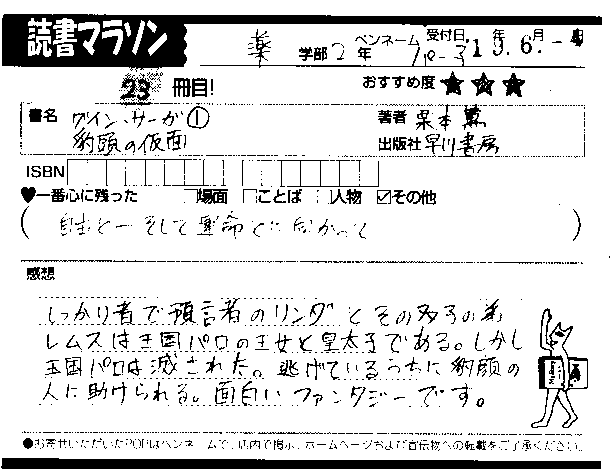 読書マラソン
薬 学部 2 年 ペンネーム 受付日 19年6月-4
23 冊目! おすすめ度 ★★★
書名 グイン・サーガ① 著者 栗本薫
豹頭の仮面 出版社 早川書房
ISBN
♥一番心に残った □場面 □ことば □人物 ☑その他
(自由と一そして運命とに向かって)
感想
しっかり者で預言者のリンダとその双子の弟
レムスは王国パロの王女と皇太子である。しかし
王国パロは滅された。逃げているうちに豹頭の
人に助けられる。面白いファンタジーです。
●お寄せいただいたPOPはペンネームで、店内で掲示、ホームページおよび宣伝物への転載をご了承ください。